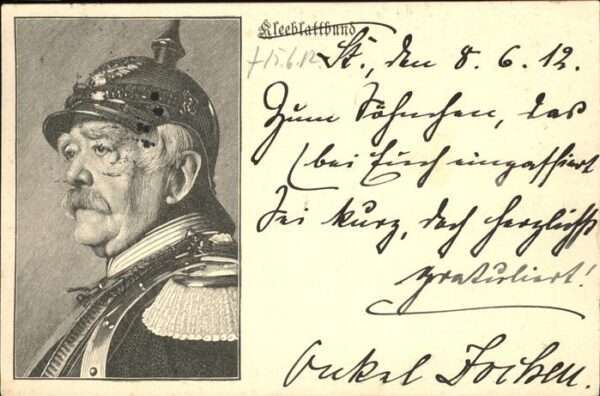 Kleeblattbund
+ 15.6.12.
St., den 8. 6. 12.
Zum Söhnchen, das
(bei Euch eingassiert
Sei kurz, doch herzlichst
gratuliert!
Onkel Jochen.